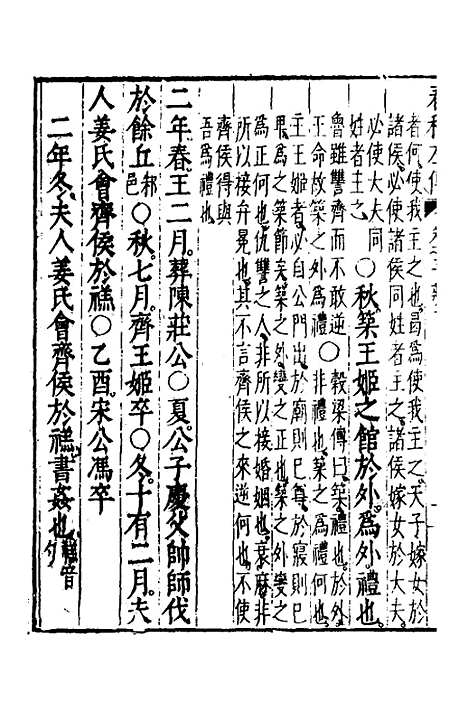 者何使我主之也曷爲使我主之天子嫁女於
諸侯必使諸侯同姓者主之諸侯嫁女於大夫
必使大夫同
姓者主之
○秋築王姬之館於外爲外禮也
魯雖讐齊而不敢逆○穀梁傳曰築禮也於外
王命故築之外爲禮○非禮也築之爲禮何也
主王姬者必自公門出於廟則已尊於寢則已
卑爲之築節矣築之外變之正也築之外變之
爲正何也仇讐之人非所以接婚姻也衰麻非
所以接弁冕也其不言齊侯之來逆何也不使
齊侯得與
吾爲禮也
二年春王二月葬陳莊公○夏公子慶父帥師伐
於餘丘邾邑○秋七月齊王姬卒○冬十有二月夫
人姜氏會齊侯於禚○乙酉宋公馮卒
二年冬夫人姜氏會齊侯於禚書姦也禚音勺